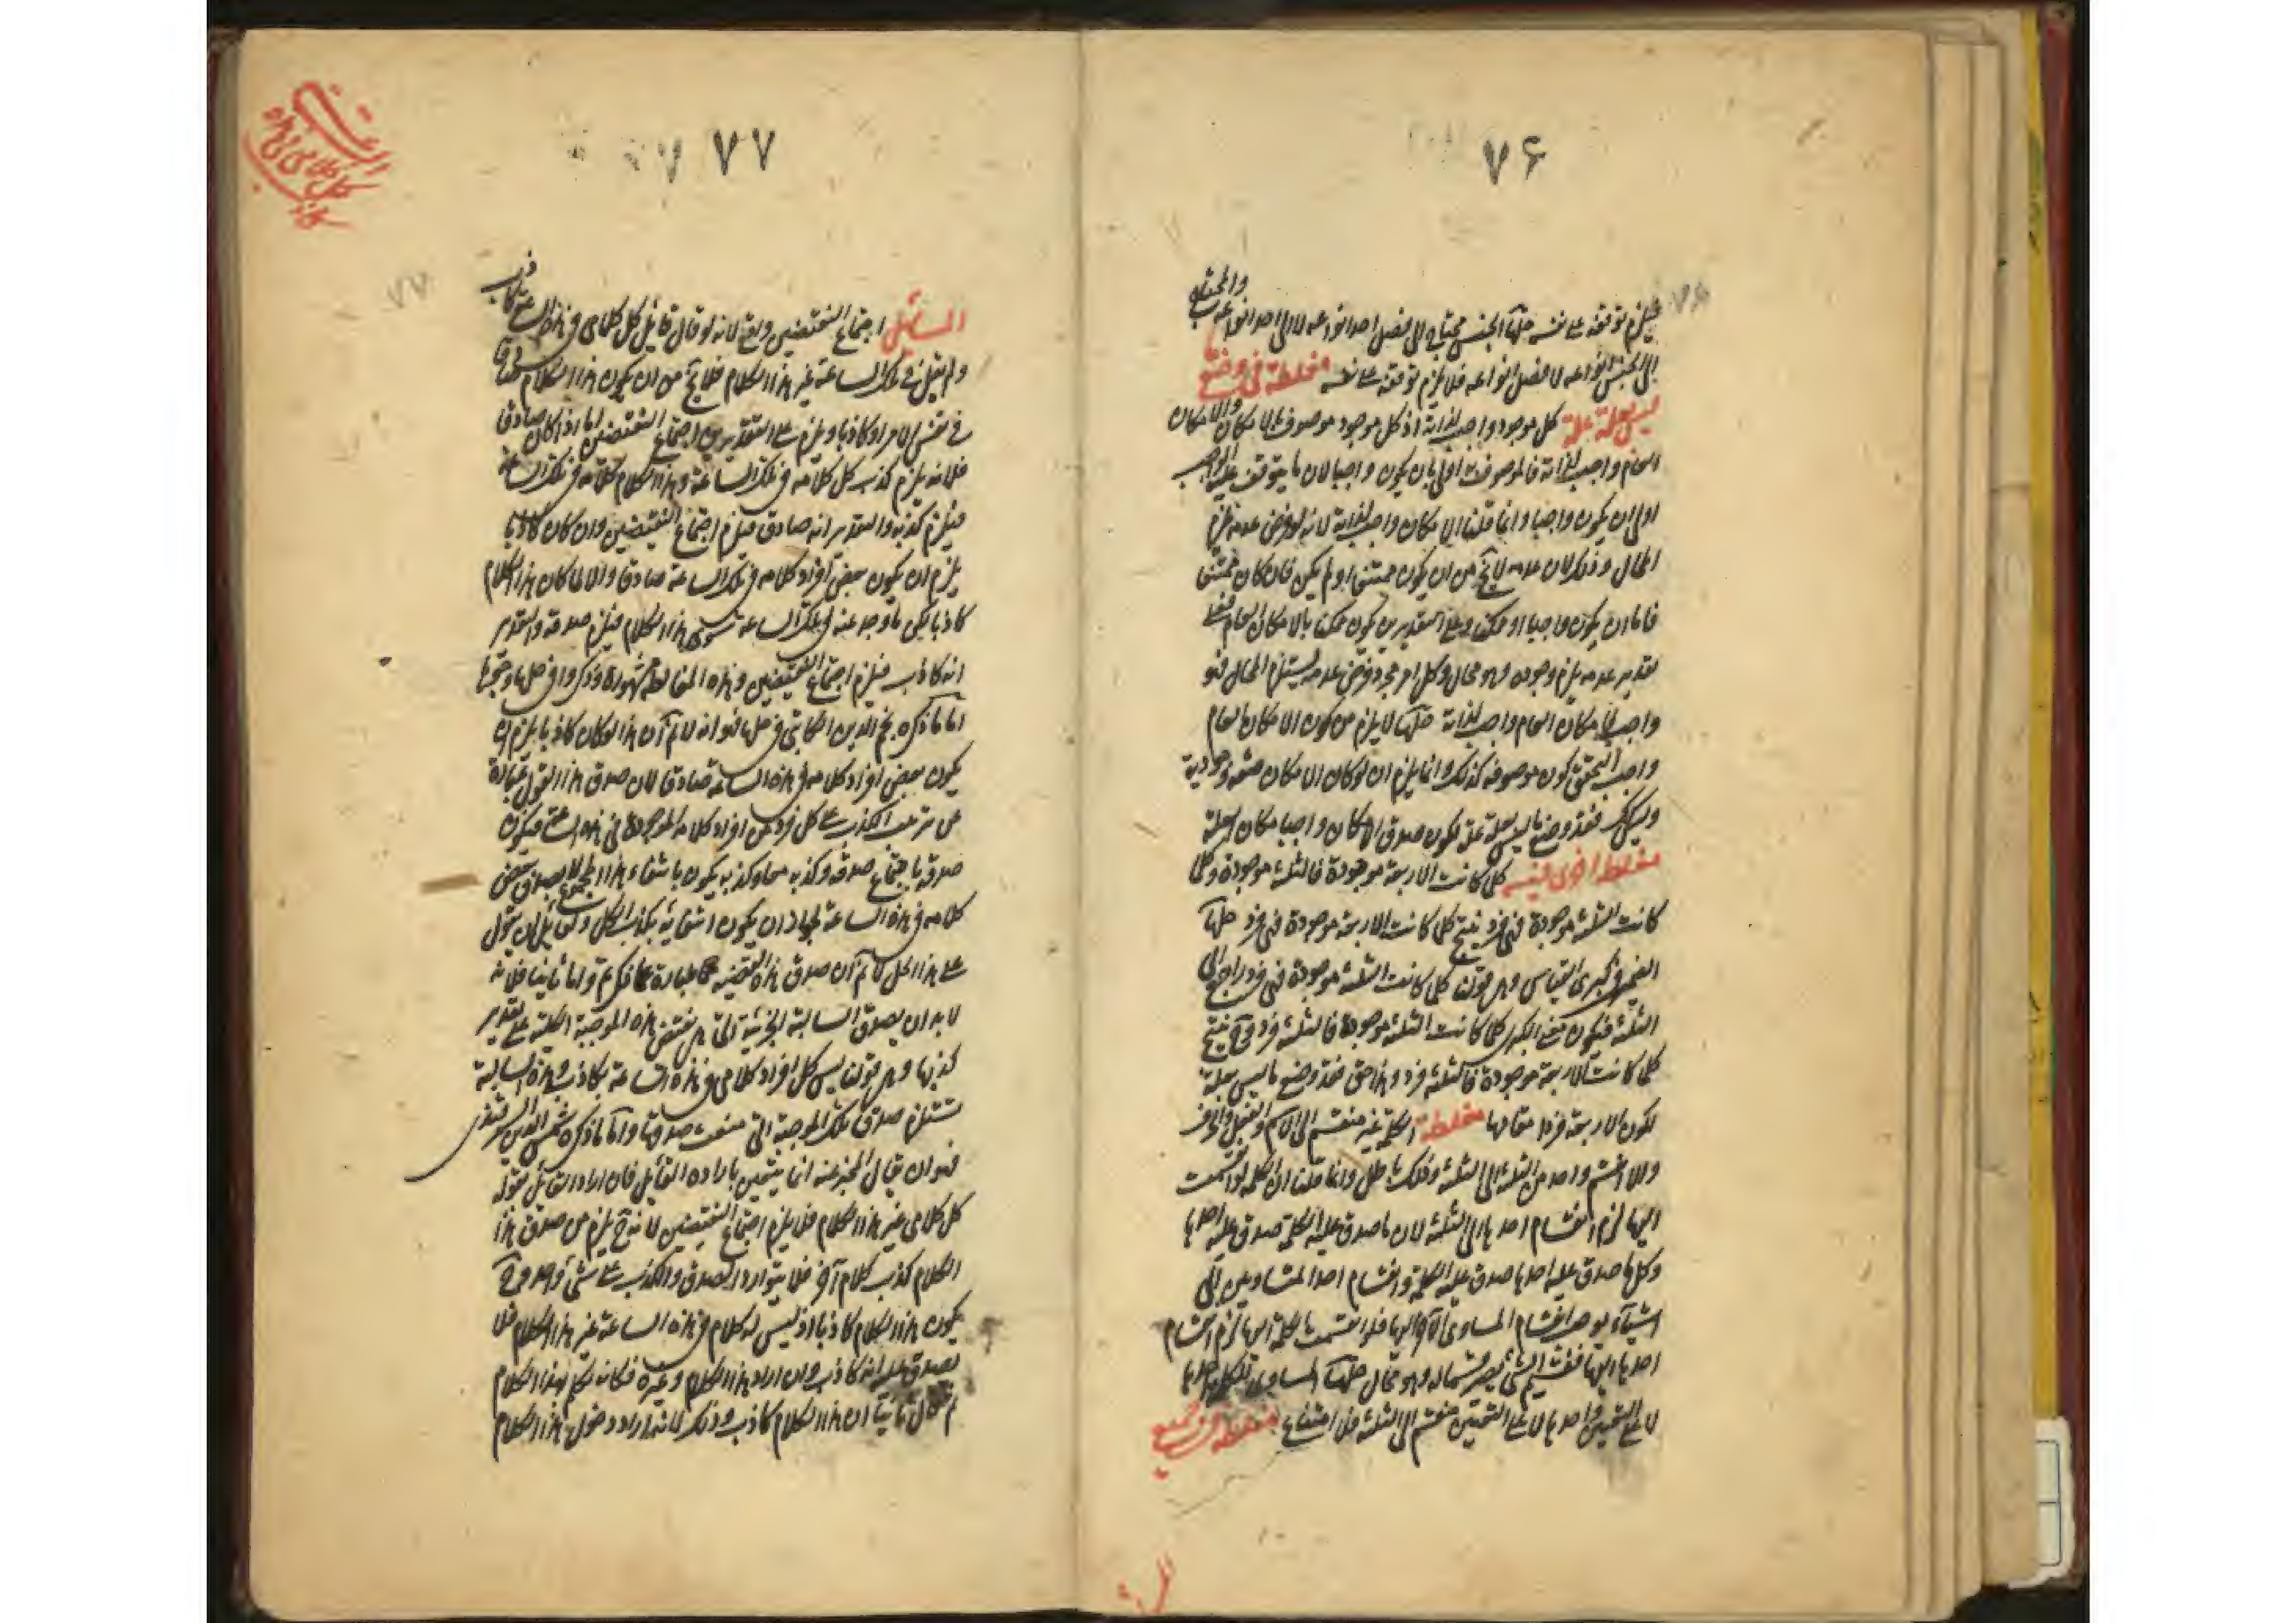 ۷۶
والمحتاج
فيلزم توقفه على نفسه حلها الجنس محتاج الى فصل احد انواعه لا الى احد انواعه
الى الجنس انواعه لا فصل انواعه فلا يلزم توقفه على نفسه مغلطة فی وضع
ليس بعلة علة كل موجود واجب لذاته اذ كل موجود موصوف بالامكان والامكان
العام واجب لذاته فالموصوف به اولى بان يكون واجبا لان ما يتوقف عليه الواجب
اولى ان يكون واجبا وانما قلنا الامكان واجب لذاته لانه لو فرض عدمه يلزم
المحال وذلك لان عدمه لا يخ من ان يكون ممتنعا او لم يكن فان كان ممتنعا
فاما ان يكون واجبا او ممكنا وعلى التقديرين يكون ممكنا بالامكان العام فعلى
تقدير عدمه يلزم وجوده وهو محال وكل امر مجرد فرض عدمه يستلزم المحال فهو
واجب فالامكان العام واجب لذاته حلها لا يلزم من كون الامكان العام
واجب التحقق كون موصوفه كذلك وانما يلزم ان لو كان الامكان صفة وجودية
وليس كك فقد وضع ما ليس بعلة علة لكون صدق الامكان واجبا مكان العلة
مغلطة اخرى نفيسة كلما كانت الاربعة موجودة فالثلثة موجودة وكلما
كانت الثلثة موجودة فهى فرد ينتج كلما كانت الاربعة موجودة فهى فرد حلها
الضمير فى كبرى القياس وهى قولنا كلما كانت الثلثة موجودة فهى فرد راجع الى
الثلثة فيكون معنى الكبرى كلما كانت الثلثة موجودة فالثلثة فرد وح ينتج
كلما كانت الاربعة موجودة فالثلثة فرد وهذا حق فقد وضع ما ليس بعلة
لكون الاربعة فردا مقامها مغلطة الكلمة غير منقسم الى الاسم والفعل والحرف
والا انقسم واحد من الثلثة الى الثلثة وذلك باطل وانما قلنا ان الكلمة لو انقسمت
اليها لزم انقسام احدها الى الثلثة لان ما صدق عليه الكلمة صدق عليه احدها
وكل ما صدق عليه احدها صدق عليه الكلمة وانقسام احد المتساويين الى
اشياء يوجب انقسام المساوى الآخر اليها فلو انقسمت الكلمة اليها لزم انقسام
احدها اليها فقسيم الشئ يصير قسما له وهو محال حلها المساوى للكلمة احدها
لا على التعيين واحدها لا على التعيين منقسم الى الثلثة فلا امتناع مغلطة فی جميع
۷۷
المسائل اجتماع النقيضين واقع لانه لو قال قائل كل كلامى فى هذه الساعة كاذب
ولم يقل فى تلك الساعة غير هذا الكلام فلا يخ من ان يكون هذا الكلام صادقا
فى نفس الامر او كاذبا ويلزم على التقديرين اجتماع النقيضين اما اذا كان صادقا
فلانه يلزم كذب كل كلامه فى تلك الساعة وهذا الكلام كلامه فى تلك الساعة
فيلزم كذبه والتقدير انه صادق فيلزم اجتماع النقيضين وان كان كاذبا
يلزم ان يكون بعض افراد كلامه فى تلك الساعة صادقا والا لما كان هذا الكلام
كاذبا لكن ما وجد عنه فى تلك الساعة سوى هذا الكلام فيلزم صدقه والتقدير
انه كاذب فيلزم اجتماع النقيضين وهذه المغالطة مشهورة وذكروا فى حلها وجوها
اما ما ذكره نجم الدين الكاتبى فى حلها فهو انه لا نم ان هذا لو كان كاذبا يلزم ان
يكون بعض افراد كلامه فى هذه الساعة صادقا لان صدق هذا القول عبارة
عن ترتب الكذب على كل فرد من افراد كلامه الموجودة فى هذه الساعة فيكون
صدقه باجتماع صدقه وكذبه معا وكذبه يكون بانتفاء هذا المجموع لا بصدق بعض
كلامه فى هذه الساعة لجواز ان يكون انتفائه بكذب الكل ولقائل ان يقول
على هذا الحل لا نم ان صدق هذه القضية عبارة عما ذكرتم واما ثانيا فلانه
لا بد ان يصدق السالبة الجزئية التى هى نقيض هذه الموجبة الكلية على تقدير
كذبها وهى قولنا ليس كل افراد كلامى فى هذه الساعة بكاذب وهذه السالبة
تستلزم صدق تلك الموجبة التى منعت صدقها واما ما ذكره شمس الدين السمرقندى
فهو ان يقال المخبر عنه انما يتعين بارادة القائل فان اراد القائل بقوله
كل كلامى غير هذا الكلام فلا يلزم اجتماع النقيضين لانه ح يلزم من صدق هذا
الكلام كذب كلام آخر فلا يتوارد الصدق والكذب على شئ واحد وح
يكون هذا الكلام كاذبا اذ ليس له كلام فى هذه الساعة غير هذا الكلام فلا
يصدق عليه انه كاذب وان اراد هذا الكلام وغيره فكانه تكلم بهذا الكلام
ثم قال ثانيا ان هذا الكلام كاذب وذلك لانه اراد دخول هذا الكلام